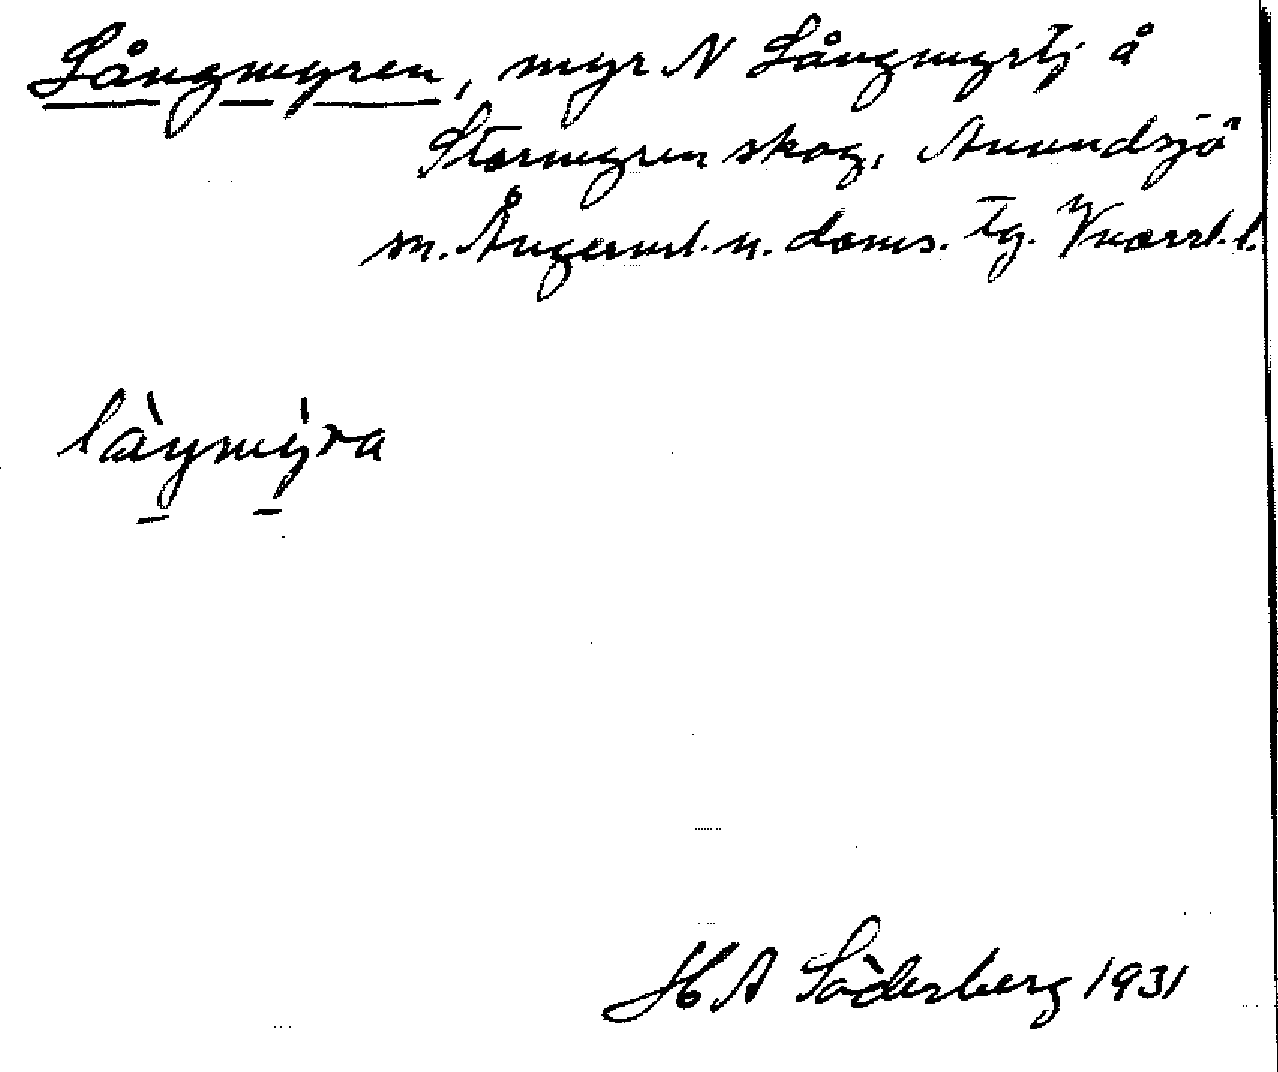 Långmyren, myr N Långmyrtj å
Stormyren skog, Anundsjö
sn. Ångerml. n. doms. tg. Vnorrl. l.
làŋmỳra
H A Söderberg 1931